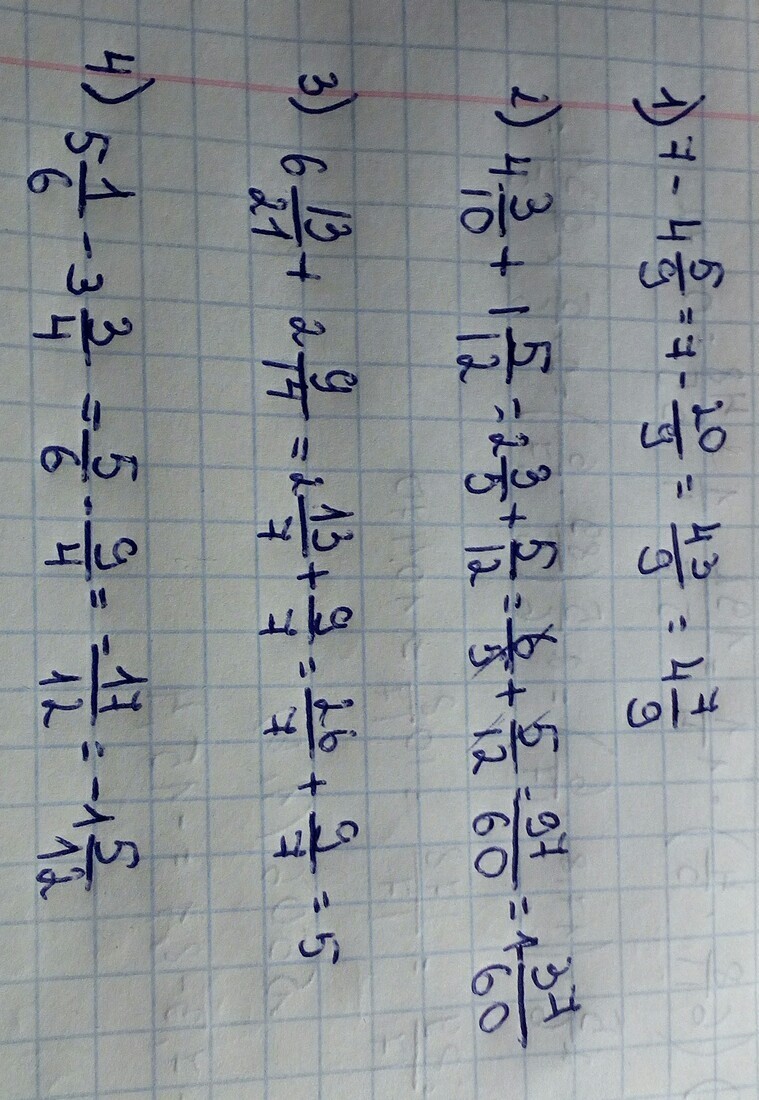 1) 7 - 4 5/9 = 7 - 20/9 = 43/9 = 4 7/9
2) 4 3/10 + 1 5/12 = 2 3/5 + 5/12 = 6/5 + 5/12 = 97/60 = 1 37/60
3) 6 13/21 + 2 9/14 = 2 13/7 + 9/7 = 26/7 + 9/7 = 5
4) 5 1/6 - 3 3/4 = 5/6 - 9/4 = -17/12 = -1 5/12